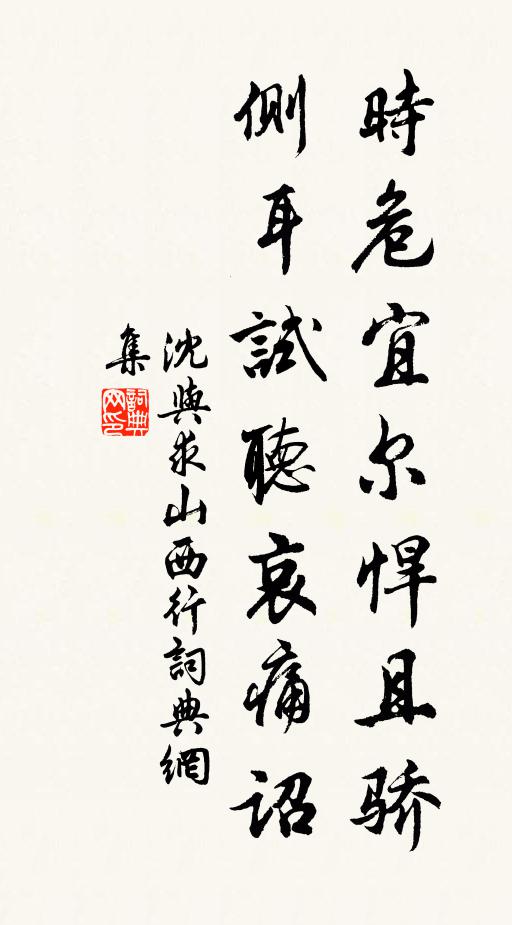 時危宜尔悍且骄
側耳試聽哀痛詔
沈與求山西行詞典網
集
詞典網印